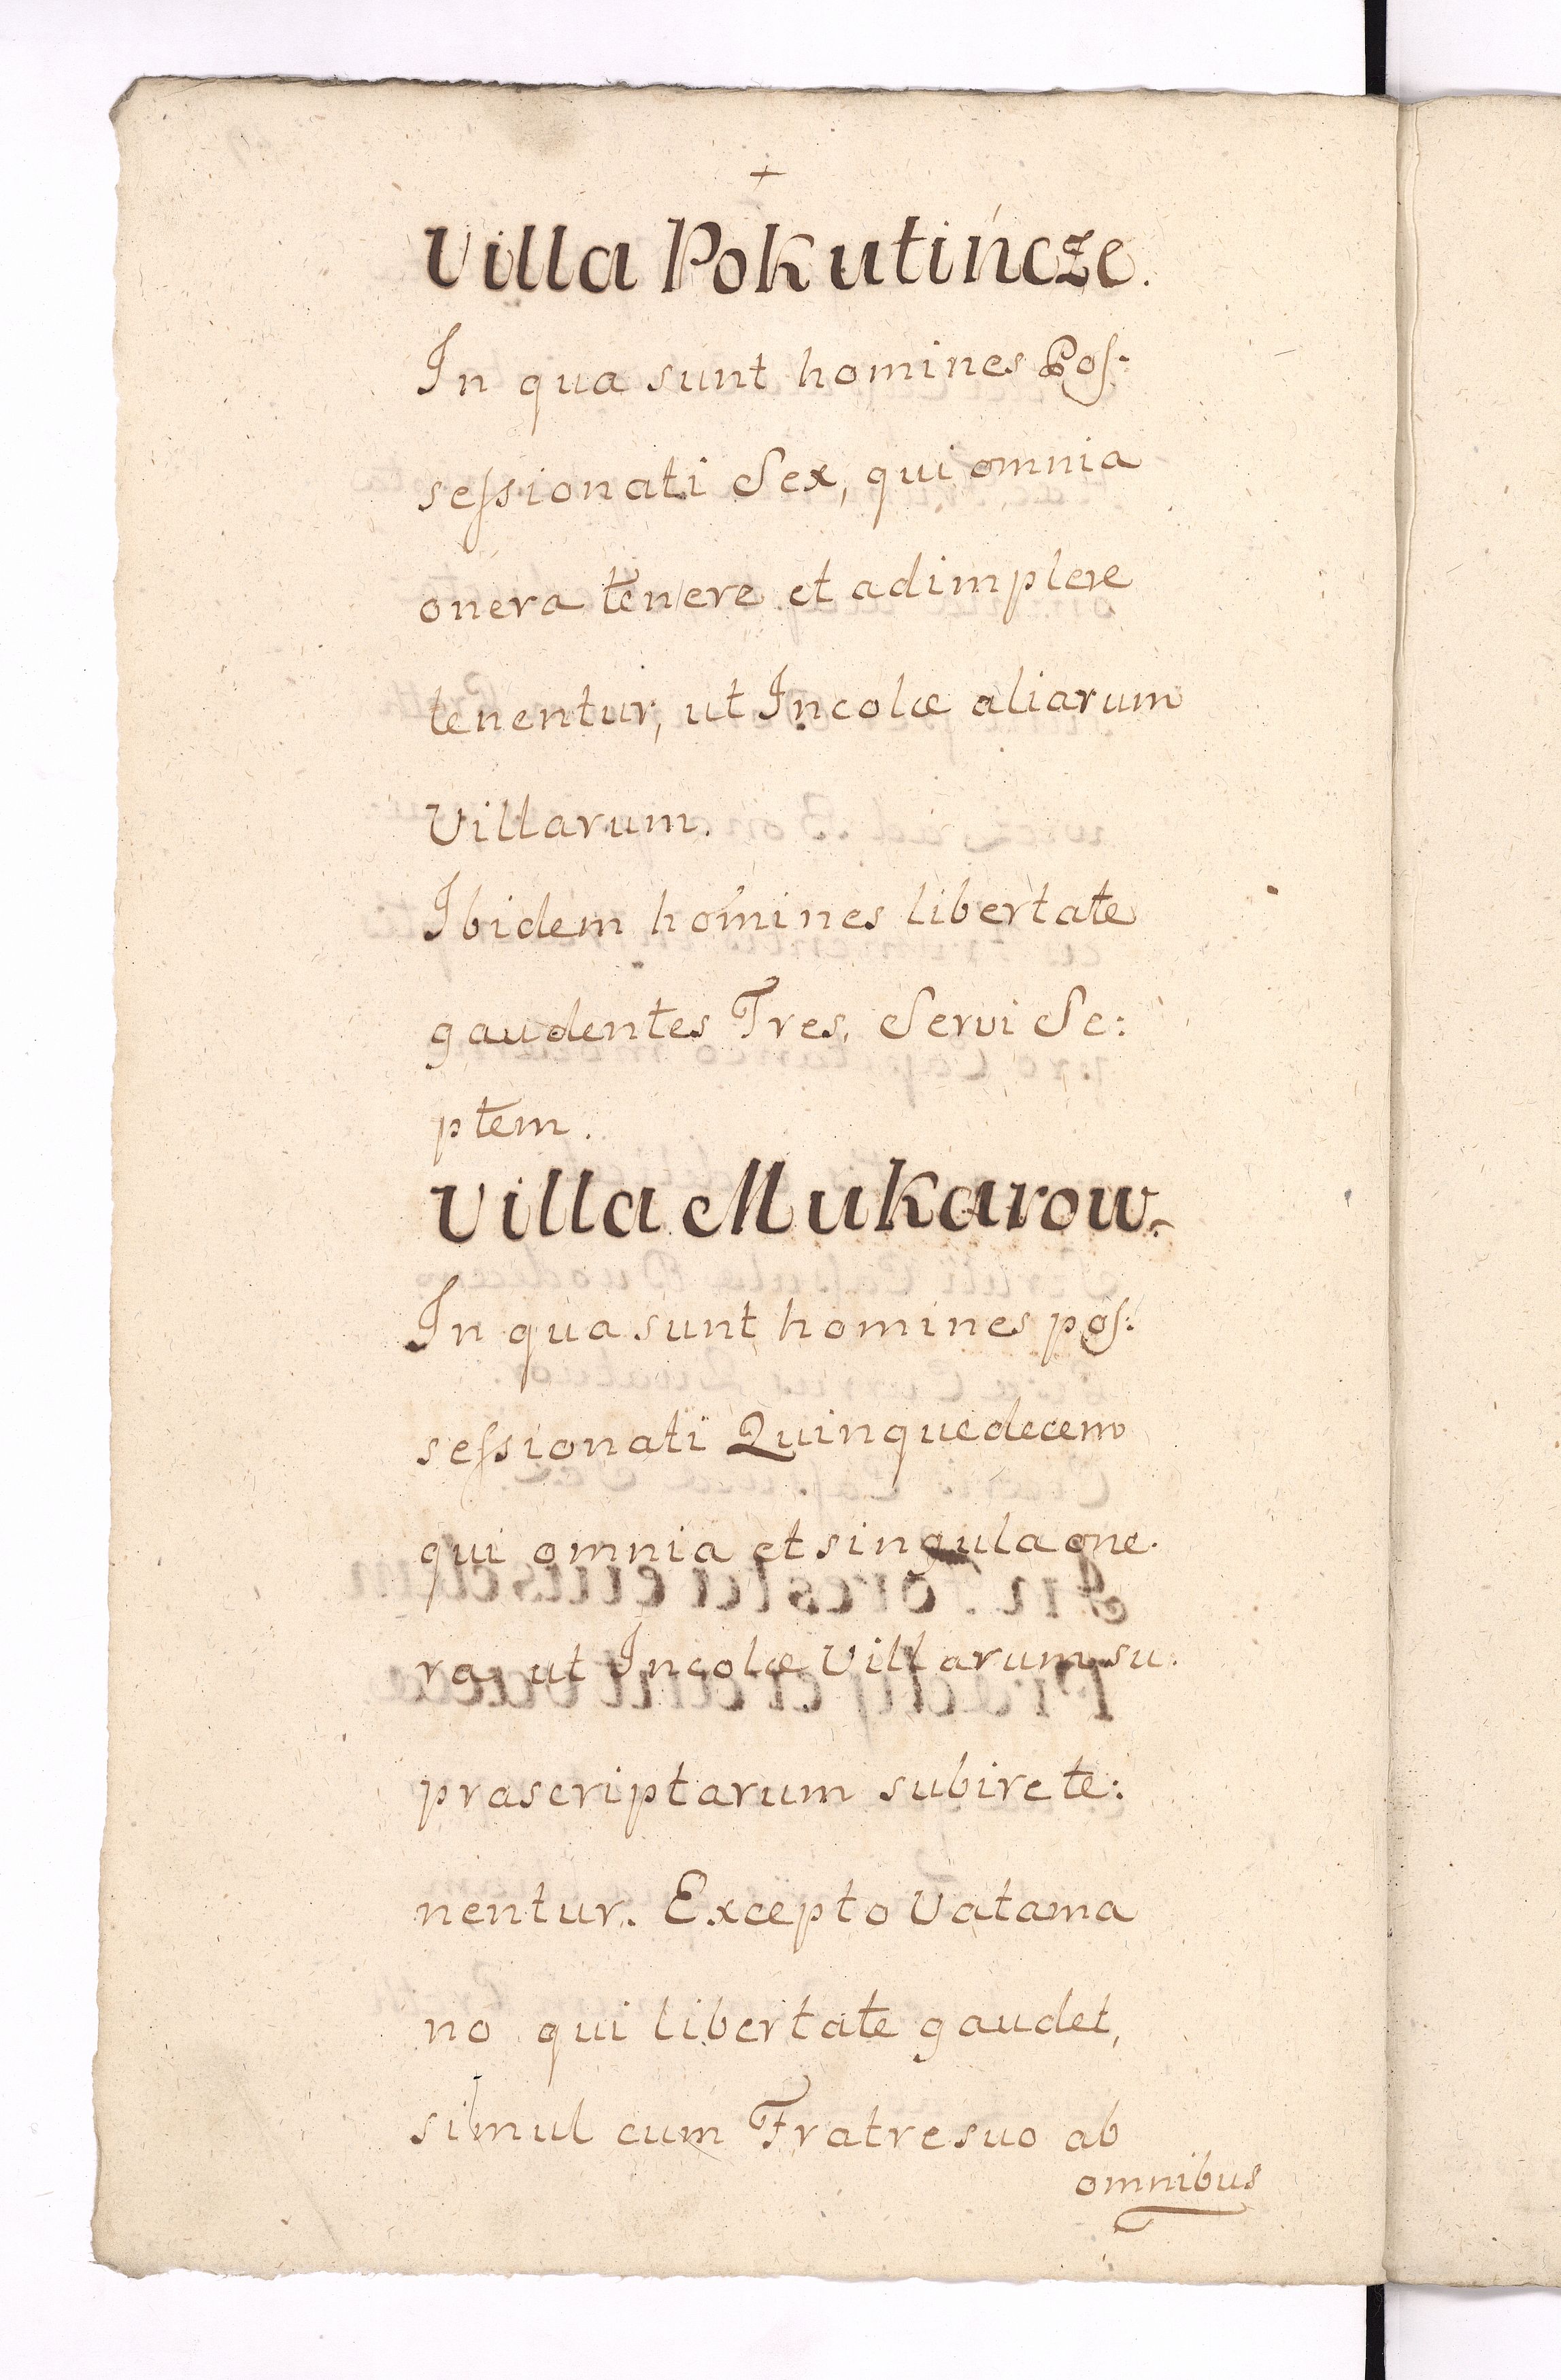 +
Villa Pokutińcze.
In qua sunt homines Pos:
sessionati Sex, qui omnia
onera tenere et adimplere
tenentur, ut Incolæ aliarum
Villarum.
Ibidem homines libertate
gaudentes Tres. Servi Se:
ptem.
Villa Mukarow.
In qua sunt homines pos:
sessionati Quinquedecem
qui omnia et singula one.
ra, ut Incolæ Villarum su:
prascriptarum subire te:
nentur. Excepto Vatama
no qui libertate gaudet,
simul cum Fratre suo ab
omnibus